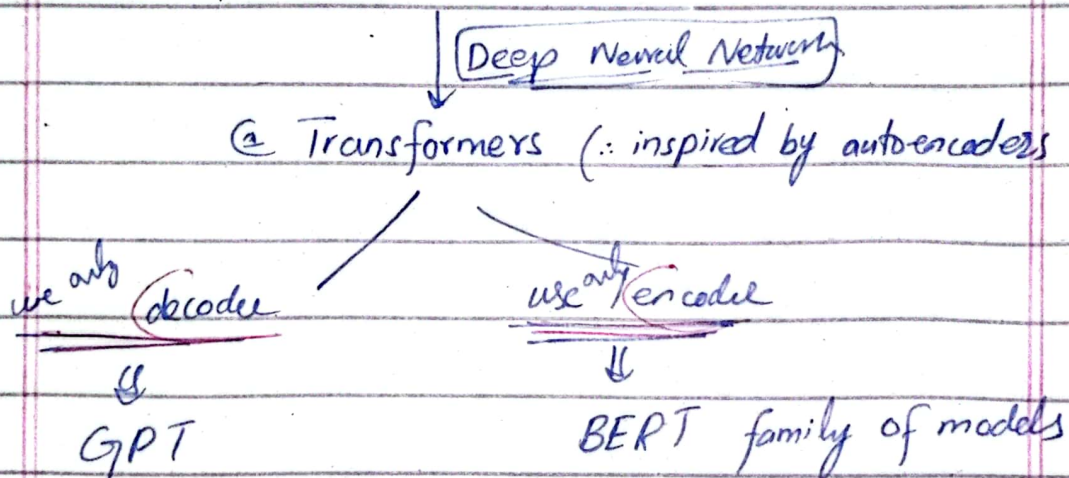 Deep Neural Network
@ Transformers (∴ inspired by autoencoders
use only decoder use only encoder
⇓ ⇓
GPT BERT family of models